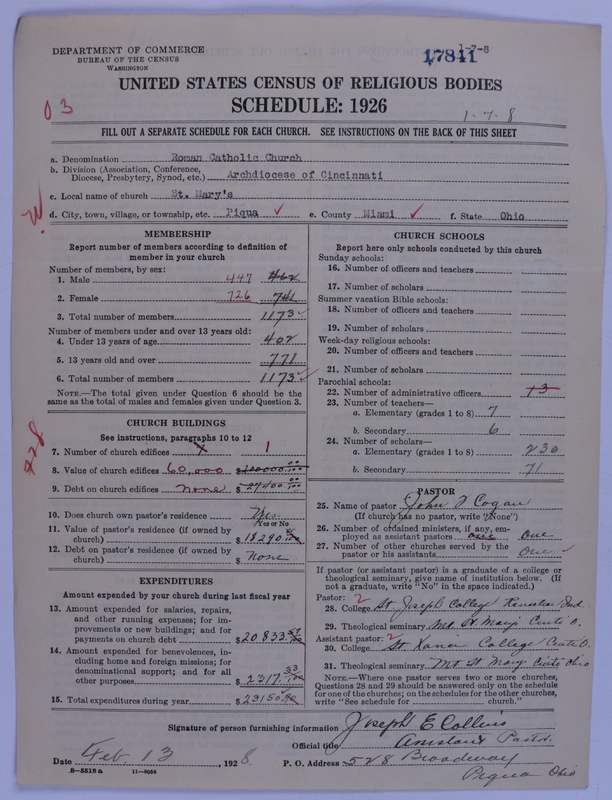 DEPARTMENT OF COMMERCE
BUREAU OF THE CENSUS
WASHINGTON
1-7-8
17841
UNITED STATES CENSUS OF RELIGIOUS BODIES
SCHEDULE: 1926
03
1-7-8
FILL OUT A SEPARATE SCHEDULE FOR EACH CHURCH. SEE INSTRUCTIONS ON THE BACK OF THIS SHEET
a. Denomination Roman Catholic Church
b. Division (Association, Conference, Diocese, Presbytery, Synod, etc.) Archdiocese of Cincinnati
c. Local name of church St. Mary's
d. City, town, village, or township, etc. Piqua ✓ e. County Miami ✓ f. State Ohio
MEMBERSHIP
Report number of members according to definition of
member in your church
Number of members, by sex:
1. Male 447 462
2. Female 726 741
3. Total number of members 1173
Number of members under and over 13 years old:
4. Under 13 years of age 402
5. 13 years old and over 771
6. Total number of members 1173
NOTE.—The total given under Question 6 should be
same as the total of males and females given under Question 3.
CHURCH BUILDINGS
See instructions, paragraphs 10 to 12
7. Number of church edifices 1
8. Value of church edifices 60,000 $100000.00
9. Debt on church edifices none $29400.00
10. Does church own pastor's residence Yes
Yes or No
11. Value of pastor's residence (if owned by
church) $18290
12. Debt on pastor's residence (if owned by
church) $ None
EXPENDITURES
Amount expended by your church during last fiscal year
13. Amount expended for salaries, repairs,
and other running expenses; for im-
provements or new buildings; and for
payments on church debt $20833
14. Amount expended for benevolences, in-
cluding home and foreign missions; for
denominational support; and for all
other purposes $2317.33
15. Total expenditures during year $23150
CHURCH SCHOOLS
Report here only schools conducted by this church
Sunday schools:
16. Number of officers and teachers
17. Number of scholars
Summer vacation Bible schools:
18. Number of officers and teachers
19. Number of scholars
Week-day religious schools:
20. Number of officers and teachers
21. Number of scholars
Parochial schools:
22. Number of administrative officers 13
23. Number of teachers—
a. Elementary (grades 1 to 8) 7
b. Secondary 6
24. Number of scholars—
a. Elementary (grades 1 to 8) 230
b. Secondary 71
PASTOR
25. Name of pastor John J Cogan
(If church has no pastor, write "None")
26. Number of ordained ministers, if any, em-
ployed as assistant pastors one One
27. Number of other churches served by the
pastor or his assistants One
If pastor (or assistant pastor) is a graduate of a college or
theological seminary, give name of institution below. (If
not a graduate, write "No" in the space indicated.)
Pastor: 2
28. College St. Joseph College Ind.
29. Theological seminary Mt. St Marys Cinti O.
Assistant pastor: 2
30. College St Xavier College Cinti O.
31. Theological seminary Mt St Marys Cinti Ohio
NOTE.—Where one pastor serves two or more churches,
Questions 28 and 29 should be answered only on the schedule
for one of the churches; on the schedules for the other churches,
write "See schedule for church."
Signature of person furnishing information Joseph E Collins
Official title Assistant Pastor.
Date Feb 13, 1928 P. O. Address 528 Broadway
Piqua Ohio
B-5518 a 11-9054